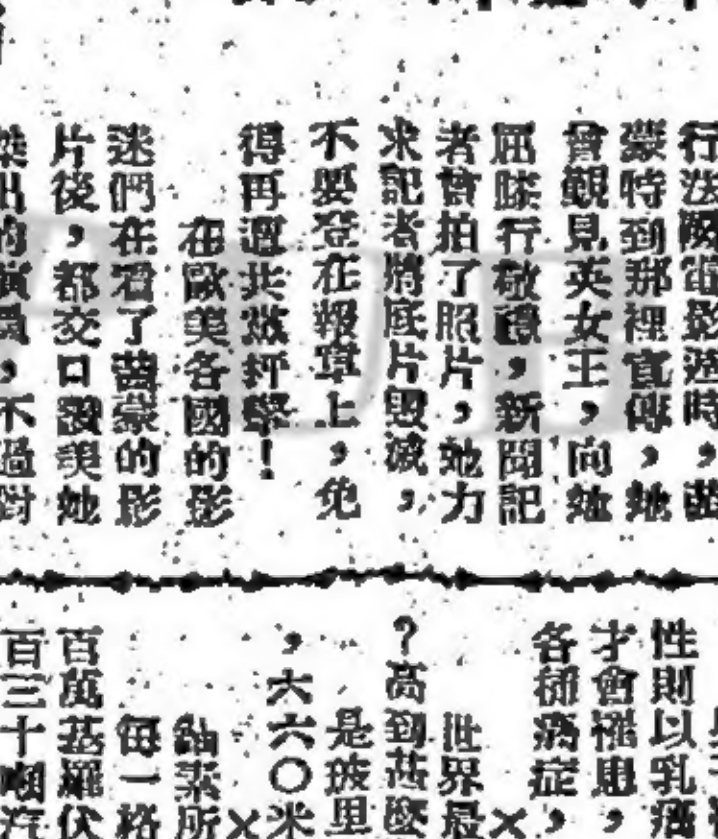 行法國電影週時，茜
蒙特到那裡宣傳，她
曾覲見英女王，向她
屈膝行敬禮，新聞記
者曾拍了照片，她力
求記者將底片毀滅，
不要登在報章上，免
得再遭共黨抨擊！
在歐美各國的影
迷們在看了茜蒙的影
片後，都交口讚美她
傑出的演員，不過對
性則以乳癌
才會罹患，
各種病症，
×
世界最
？高到甚麼
是玻里
，六六〇米
×
鈾素所
每一格
百萬基羅伏
百三十噸汽